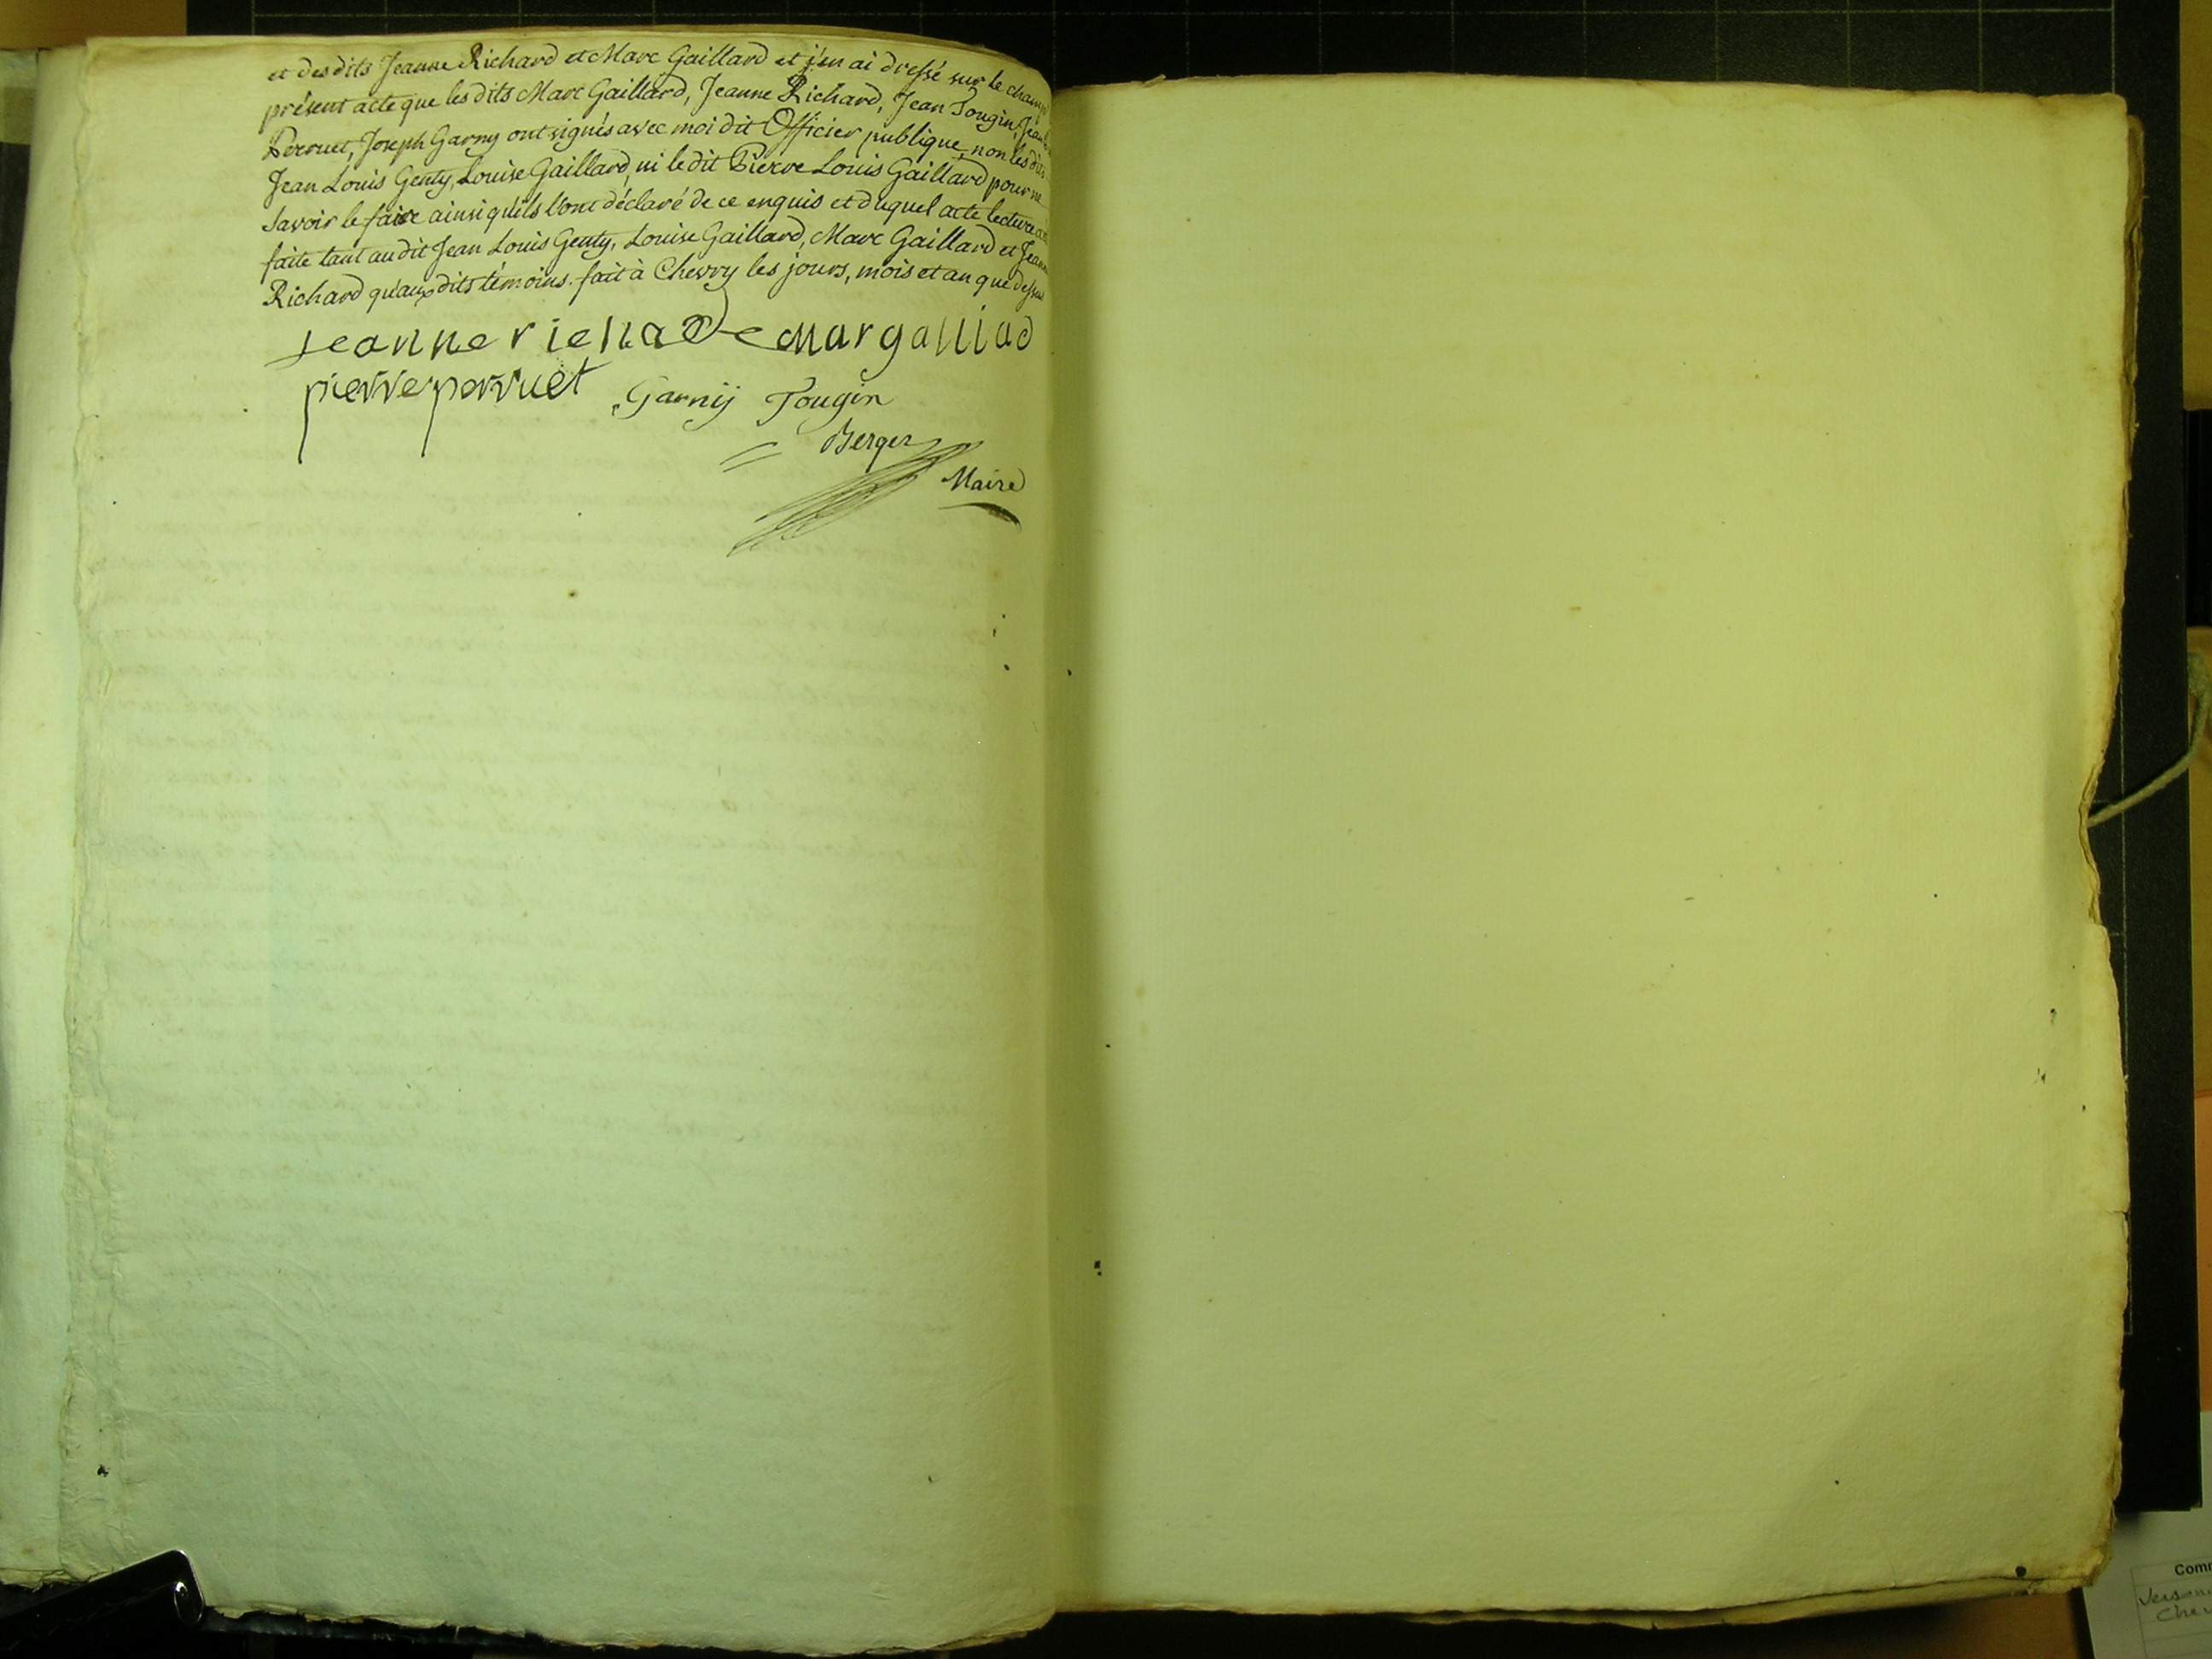 et des dits Jeanne Richard et Marc Gaillard et j'en ai dressé sur le champ
présent acte que les dits Marc Gaillard, Jeanne Richard, Jean Tougin, Jean
Perruet, Joseph Garny ont signés avec moi dit Officier publique, non les dits
Jean Louis Genty, Louise Gaillard, ni le dit Pierre Louis Gaillard pour ne
Savoir le faire ainsi qu'ils l'ont déclaré de ce enquis et duquel acte lecture a
faite tant au dit Jean Louis Genty, Louise Gaillard, Marc Gaillard et Jeanne
Richard qu'aux dits témoins. fait à Chevry les jours, mois et an que dessus
jeanne richard marc galliad
pierre perruet Garnij Tougin
Berger
Maire
Com
Che